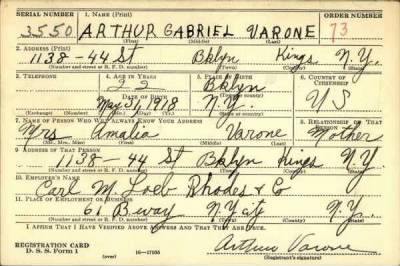 SERIAL NUMBER 1. NAME (Print) ORDER NUMBER
3550 ARTHUR GABRIEL VARONE 73
(First) (Middle) (Last)
2. ADDRESS (Print)
1138-44 St Bklyn Kings N.Y.
(Number and street or R. F. D. number) (Town) (County) (State)
3. TELEPHONE 4. AGE IN YEARS 5. PLACE OF BIRTH 6. COUNTRY OF CITIZENSHIP
Bklyn
(Town or county)
DATE OF BIRTH
May 31, 1918 N.Y. U S
(Exchange) (Number) (Mo.) (Day) (Yr.) (State or country)
7. NAME OF PERSON WHO WILL ALWAYS KNOW YOUR ADDRESS 8. RELATIONSHIP OF THAT PERSON
Mrs Amalia Varone Mother
(Mr., Mrs., Miss) (First) (Middle) (Last)
9. ADDRESS OF THAT PERSON
1138-44 St Bklyn Kings N.Y.
(Number and street or R. F. D. number) (Town) (County) (State)
10. EMPLOYER'S NAME
Carl M. Loeb Rhodes & Co
11. PLACE OF EMPLOYMENT OR BUSINESS
61 B.way N.Y city N.Y.
(Number and street or R. F. D. number) (Town) (County) (State)
I AFFIRM THAT I HAVE VERIFIED ABOVE ANSWERS AND THAT THEY ARE TRUE.
REGISTRATION CARD
D. S. S. Form 1 (over) 16-17105 Arthur Varone
(Registrant's signature)